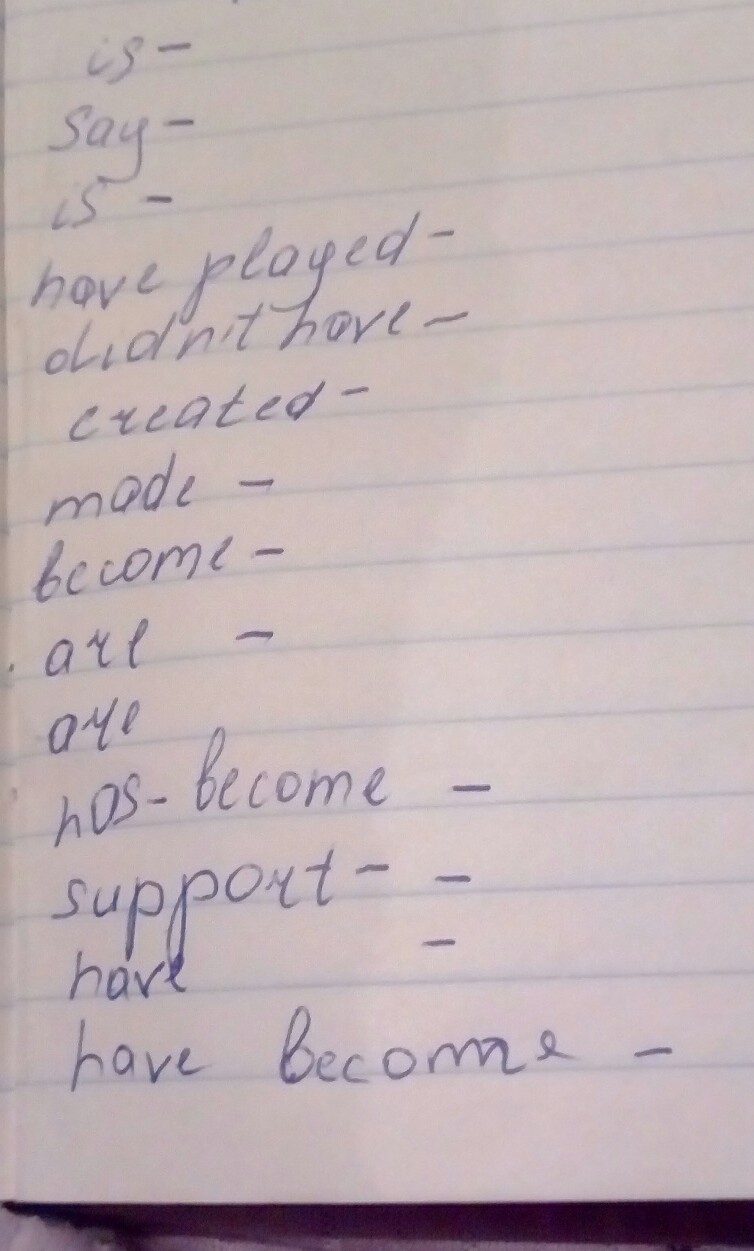 is -
say -
is -
have played -
didn't have -
created -
made -
become -
are -
are
has - become -
support - -
have -
have become -